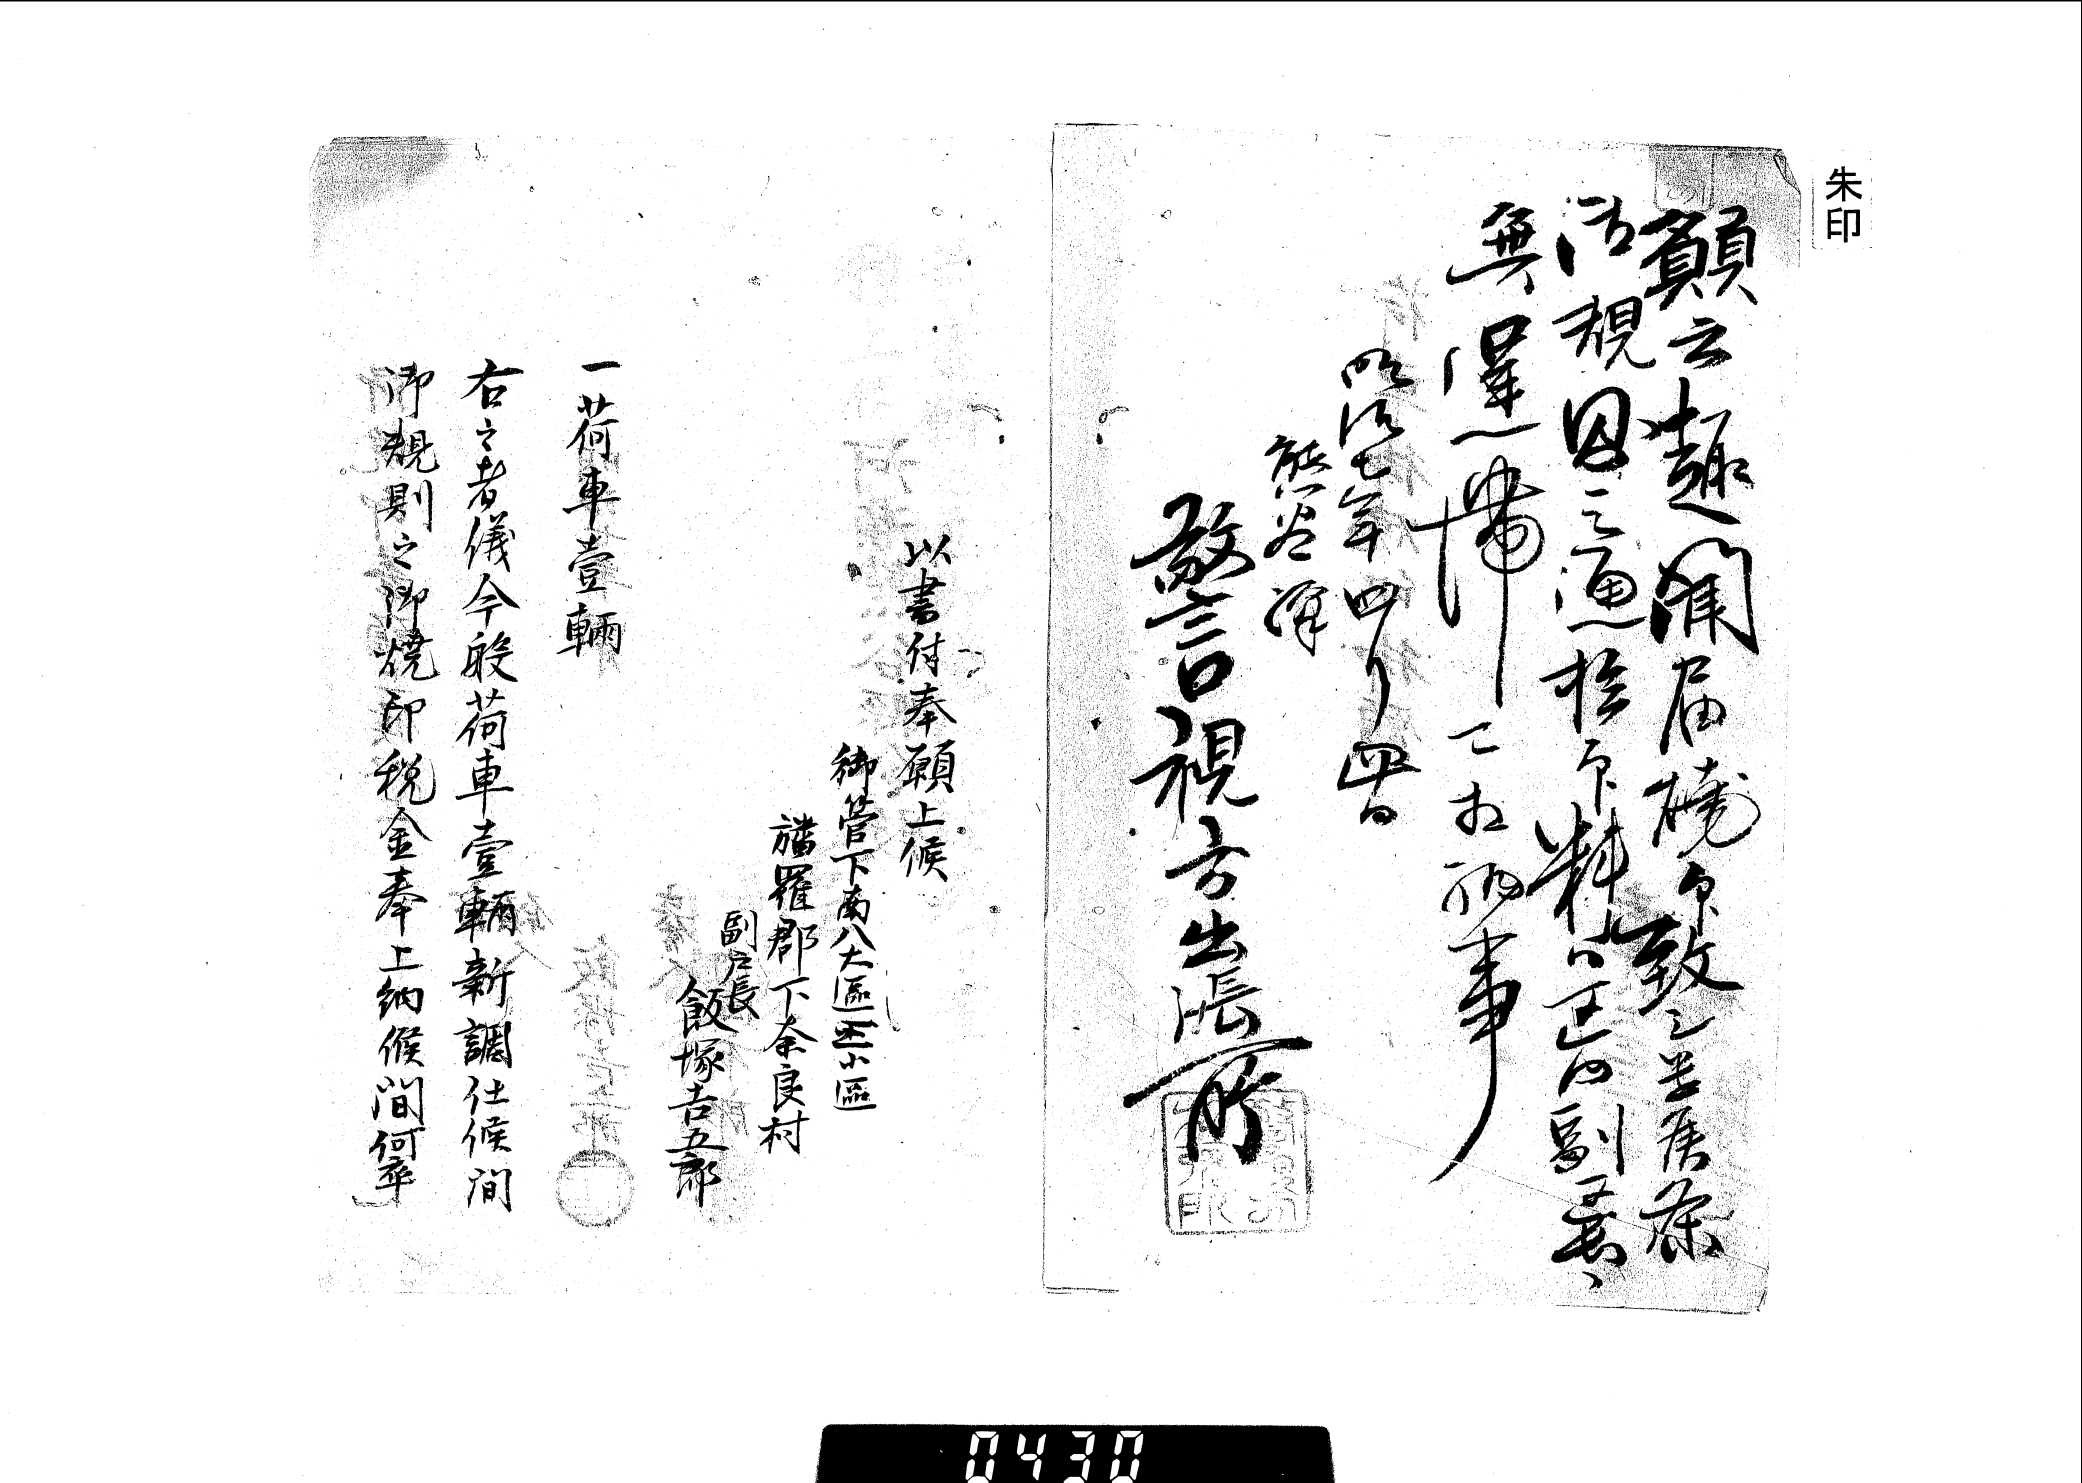 朱印
願之趣聞届焼印致之遣候条
御規則之通焼印料正副戸長
無遅滞可相納事
明治七年四月四日
熊谷縣
警視方出張所
以書付奉願上候
御管下南八大區三小區
旛羅郡下奈良村
副戸長
飯塚吉五郎
一荷車壹輛
右之者儀今般荷車壹輛新調仕候間
御規則之御焼印税金奉上納候間何卒
0430